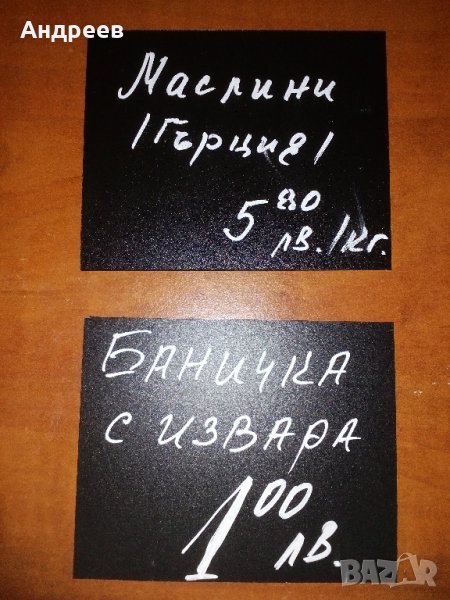 Андреев
Маслини
/Гърция/
5 80
лв./кг.
БАНИЧКА
С ИЗВАРА
1 00
лв.
BAZAR